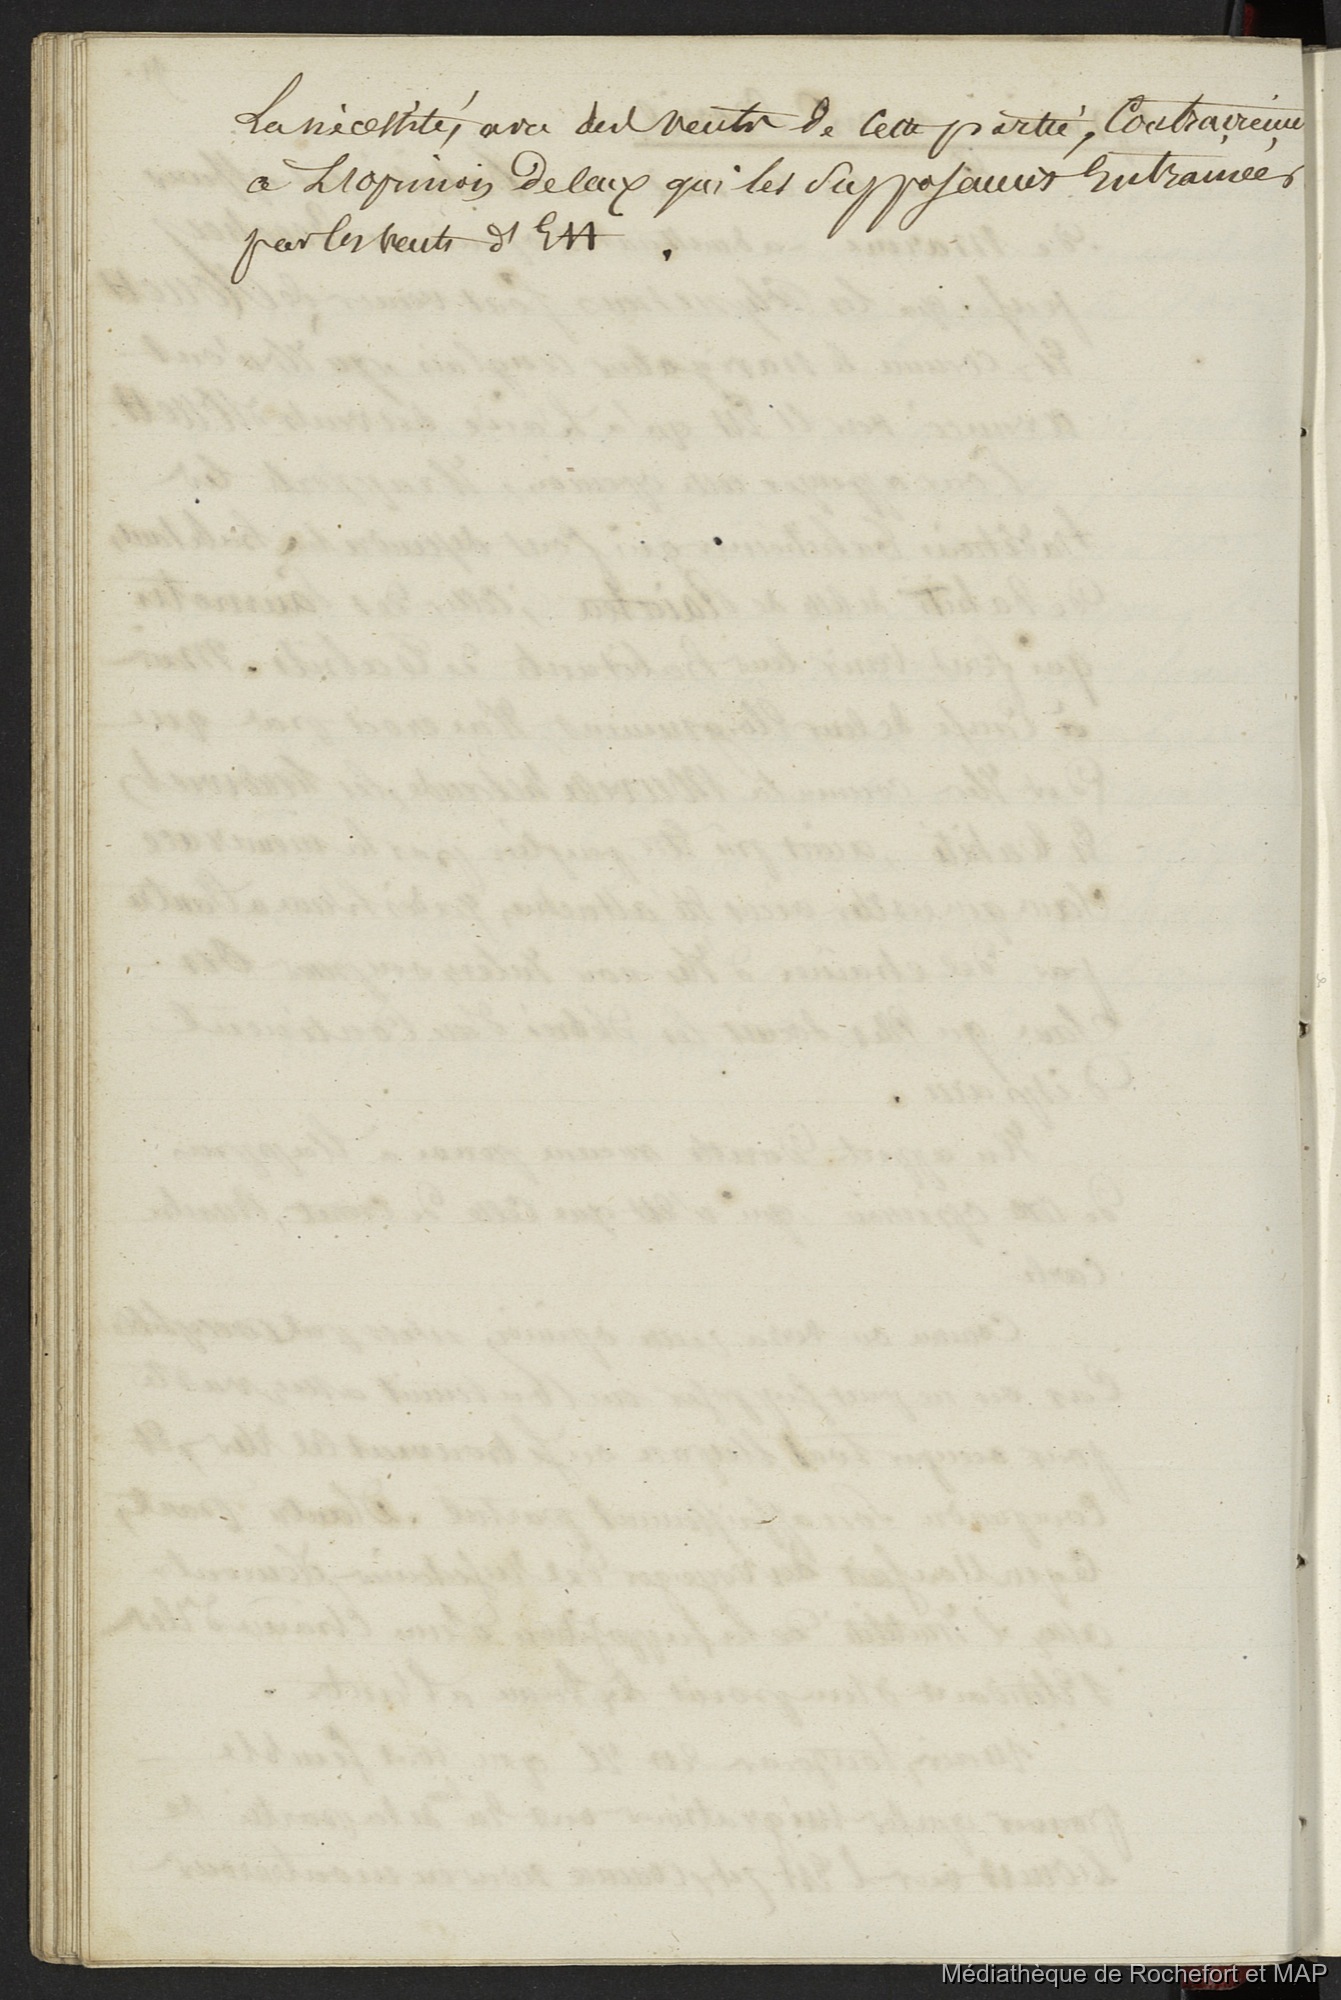 La nécessité, avec des vents de cette partie, Contrairemt
à L'opinion De ceux qui les Supposaient Entrainées
par les vents d'Est.
Médiathèque de Rochefort et MAP